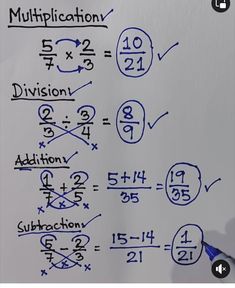 Multiplication✓
5/7 × 2/3 = 10/21 ✓
Division✓
2/3 ÷ 3/4 = 8/9 ✓
Addition✓
1/7 + 2/5 = 5+14/35 = 19/35 ✓
Subtraction✓
5/7 - 2/3 = 15-14/21 = 1/21